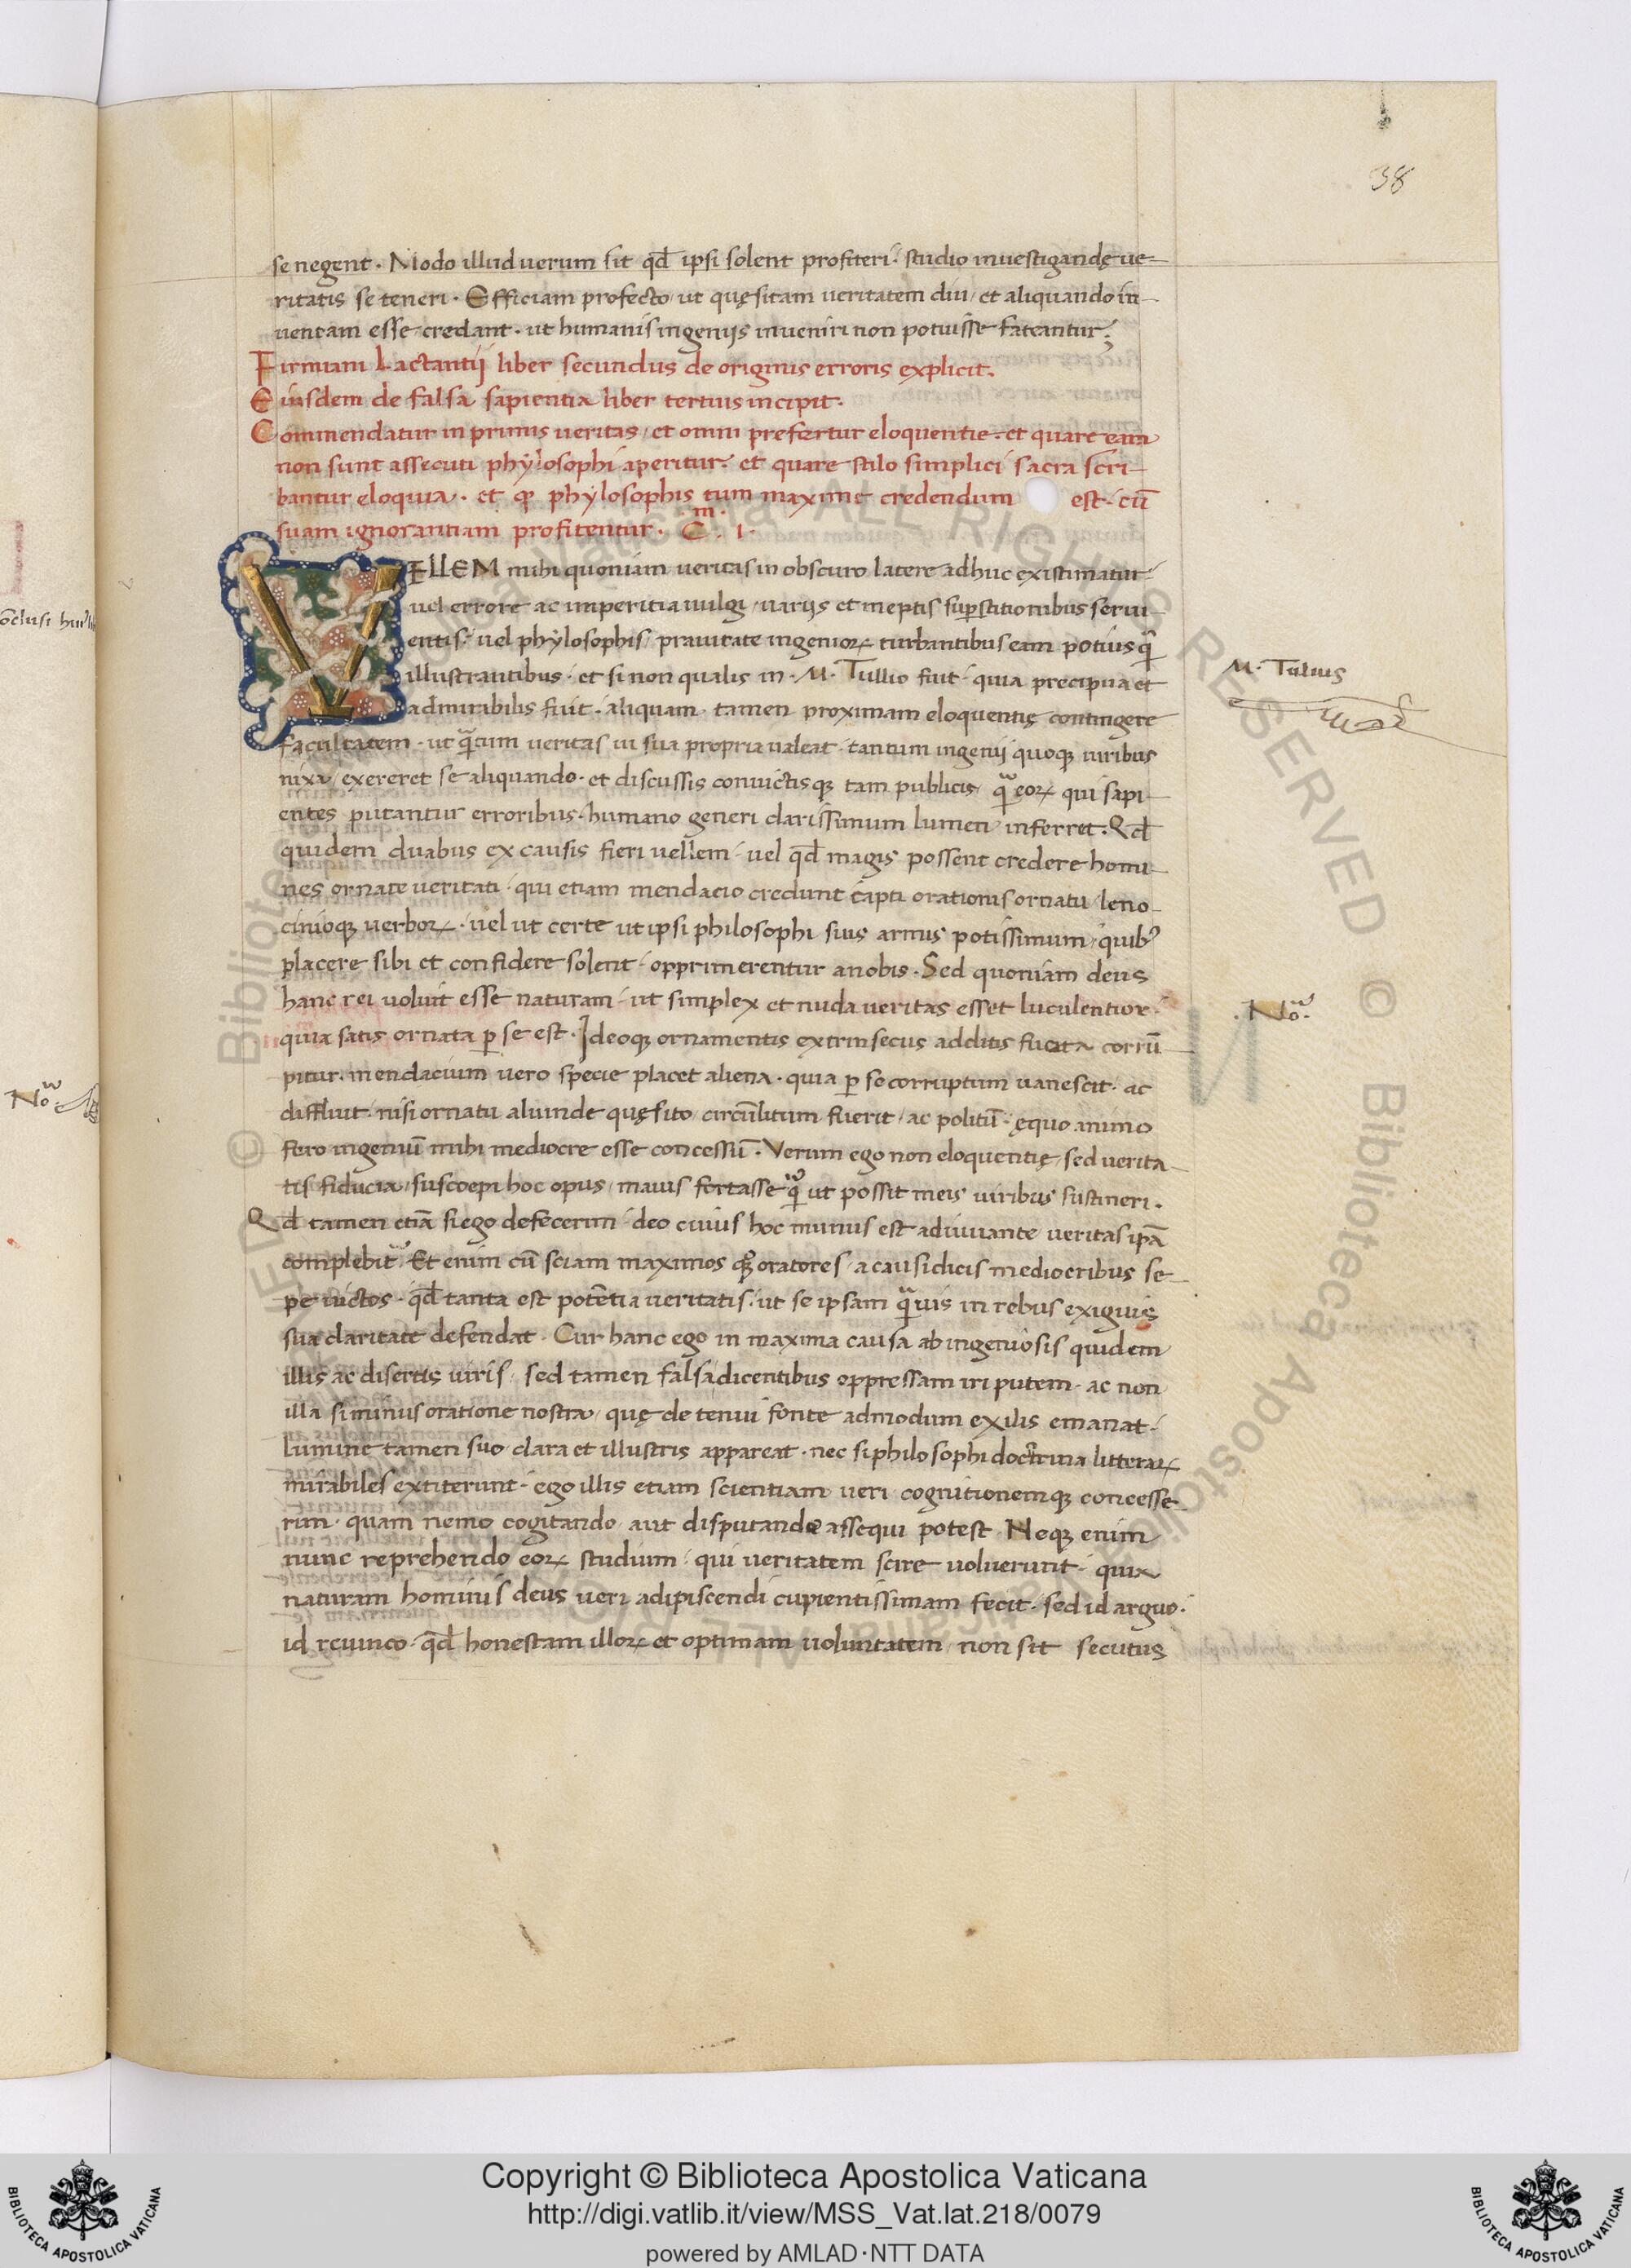 38
se negent. Modo illud uerum sit qd̄ ipsi solent profiteri. studio inuestigandę ue-
ritatis se teneri. Efficiam profecto, ut quęsitam ueritatem diu, et aliquando in-
uentam esse credant. ut humanis ingenijs inueniri non potuisse fateantur;
Firmiani Lactantij liber secundus de originis erroris explicit.
Eiusdem de falsa sapientia liber tertius incipit.
Commendatur in primis ueritas, et omni prefertur eloquentie. et quare eam
non sunt assecuti phylosophi aperitur. et quare stilo simplici sacra scri-
bantur eloquia. et ꝙ phylosophis tum maxime credendum est. cū
suam ignorantiam profitentur. Cᵐ. 1.
VELLEM mihi quoniam ueritas in obscuro latere adhuc existimatur.
uel errore ac imperitia uulgi, uarijs et ineptis suꝑstitionibus serui-
entis. uel phylosophis, prauitate ingenioꝝ turbantibus eam potius qᷓ
illustrantibus. et si non qualis in. M. Tullio fuit. quia precipua et
admirabilis fuit. aliquam tamen proximam eloquentię contingere
facultatem. ut qᷓtum ueritas ui sua propria ualeat. tantum ingenii quoqꝫ uiribus
nixa, exereret se aliquando. et discussis conuictisqꝫ tam publicis, qᷓ eoꝝ qui sapi-
entes putantur erroribus. humano generi clarissimum lumen inferret. Qd̄
quidem duabus ex causis fieri uellem. uel qd̄ magis possent credere homi-
nes ornate ueritati. qui etiam mendacio credunt capti orationis ornatu, leno-
cinioqꝫ uerboꝝ. uel ut certe ut ipsi philosophi suis armis potissimum, quibꝰ
placere sibi et confidere solent. opprimerentur a nobis. Sed quoniam deus
hanc rei uoluit esse naturam. ut simplex et nuda ueritas esset luculentior.
quia satis ornata ꝑ se est. Ideoqꝫ ornamentis extrinsecus additis fucata corrū-
pitur. mendacium uero specie placet aliena. quia ꝑ se corruptum uanescit. ac
diffluit. nisi ornatu aliunde quęsito, circūlitum fuerit, ac politū. ęquo animo
fero ingeniū mihi mediocre esse concessū. Verum ego non eloquentię, sed uerita-
tis fiducia, suscoepi hoc opus, maius fortasse qᷓ ut possit meis uiribus sustineri.
Qd̄ tamen etiā si ego defecerim. deo cuius hoc munus est adiuuante ueritas ipā
complebit. Et enim cū sciam maximos qꝫ oratores, a causidicis mediocribus se-
pe uictos. qd̄ tanta est potētia ueritatis. ut se ipsam qᷓuis in rebus exiguis
sua claritate defendat. Cur hanc ego in maxima causa ab ingeniosis quidem
illis ac disertis uiris, sed tamen falsa dicentibus oppressam iri putem. ac non
illa si minus oratione nostra, quę de tenui fonte admodum exilis emanat.
lumine tamen suo, clara et illustris appareat. nec si philosophi doctrina litteraꝝ
mirabiles extiterunt. ego illis etiam scientiam ueri cognitionemqꝫ concesse-
rim. quam nemo cogitando, aut disputando assequi potest. Neqꝫ enim
nunc reprehendo eoꝝ studium. qui ueritatem scire uoluerunt. quia
naturam hominis deus ueri adipiscendi cupientissimam fecit. sed id arguo.
id reuinco. qd̄ honestam illoꝝ et optimam uoluntatem, non sit secutus
M. Tulius
.No.
No.
Copyright © Biblioteca Apostolica Vaticana
http://digi.vatlib.it/view/MSS_Vat.lat.218/0079
powered by AMLAD·NTT DATA
BIBLIOTECA APOSTOLICA VATICANA
BIBLIOTECA APOSTOLICA VATICANA